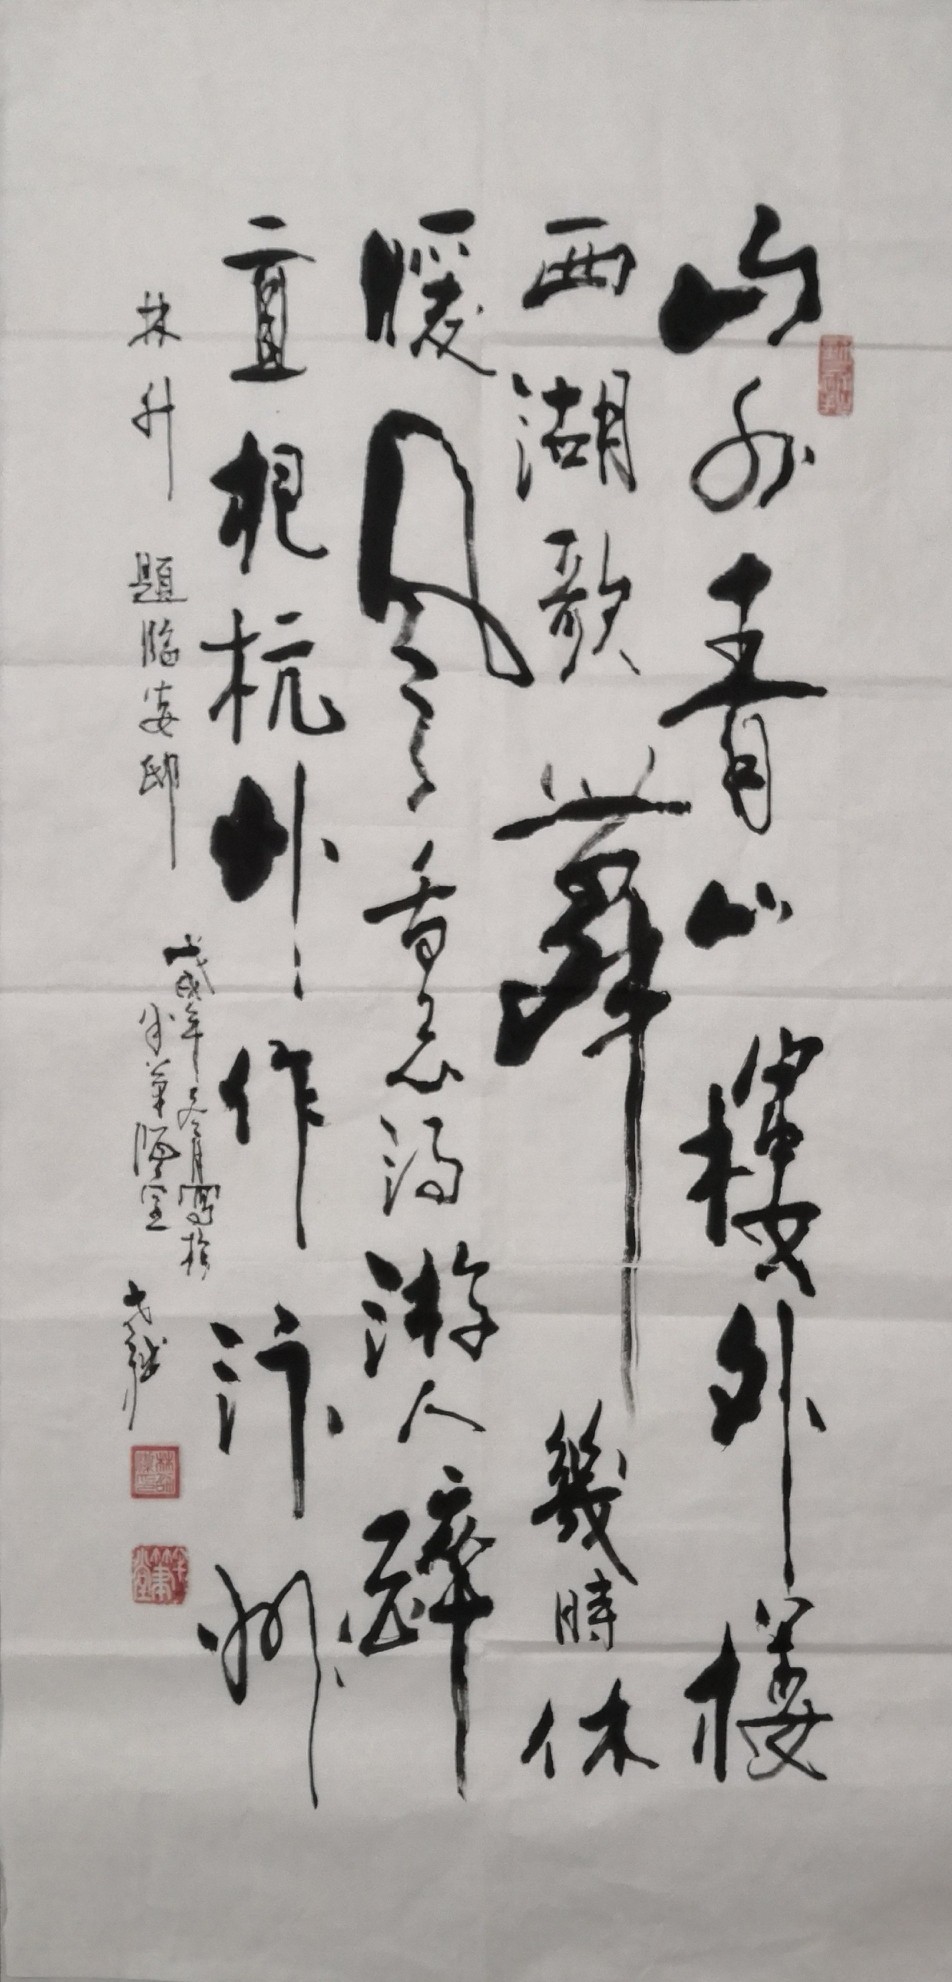 山外青山樓外樓
西湖歌舞幾時休
暖風熏得游人醉
直把杭州作汴州
林升 題臨安邸
戊戌年冬月寫於